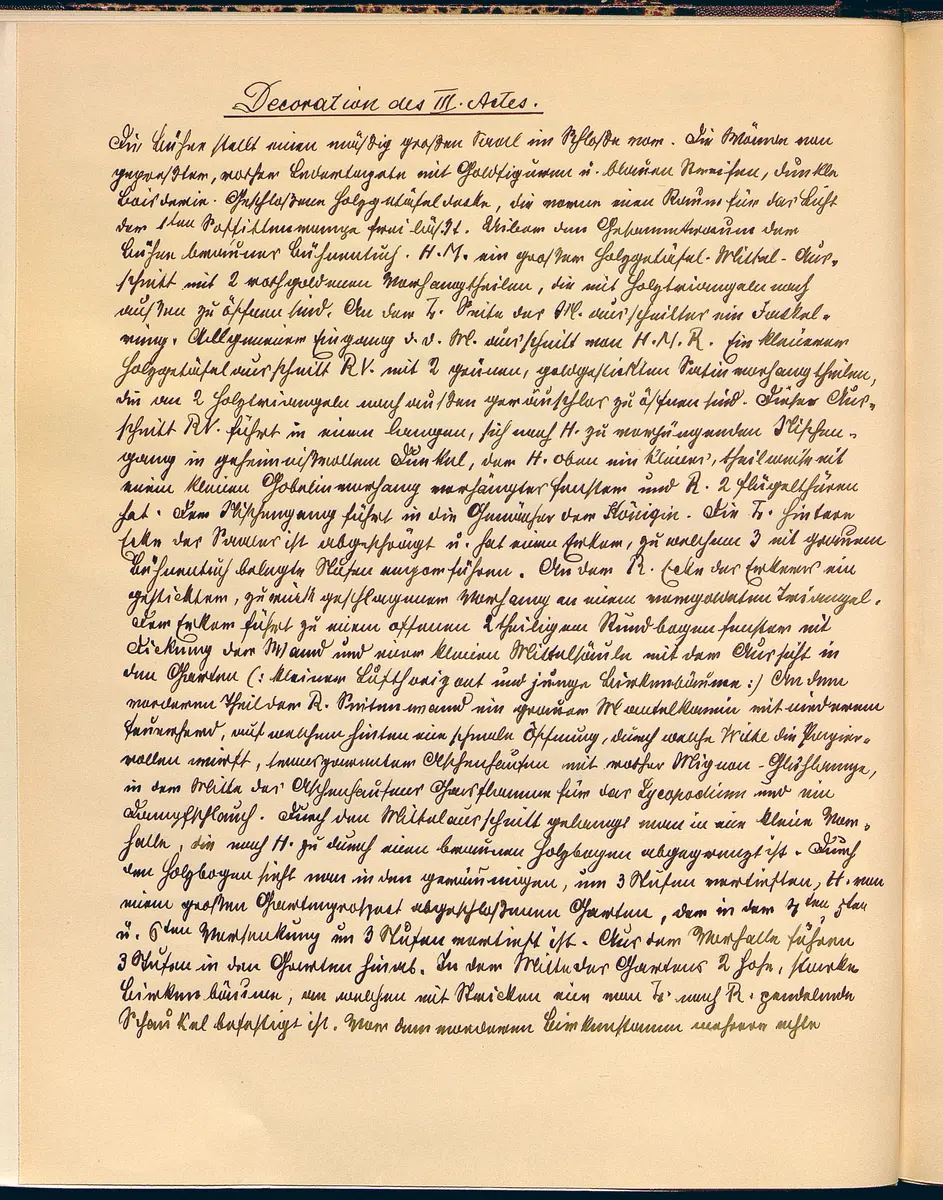 Decoration des III. Actes.
Die Bühne stellt einen mäßig großen Saal im Schloße vor. Die Wände von
gepreßter, rother Ledertapete mit Goldfiguren u. blauen Streifen, dunkle
Boiserie. Geschloßene Holzgetäfeldecke, die vorne einen Raum für das Licht
der 1ten Soffittenrampe frei läßt. Ueber den Gesammtraum der
Bühne braunes Bühnentuch. H. M. ein großer Holzgetäfel-Mittel-Aus-
schnitt mit 2 rothgoldenen Vorhangtheilen, die mit Holztriangeln nach
außen zu öffnen sind. An der L. Seite des M. ausschnittes ein Fackel-
ring. Allgemeiner Eingang d. d. M. ausschnitt von H. M. R. Ein kleinerer
Holzgetäfelausschnitt RV. mit 2 grünen, goldgestickten Satinvorhangtheilen,
die an 2 Holztriangeln nach außen geräuschlos zu öffnen sind. Dieser Aus-
schnitt RV. führt in einen langen, sich nach H. zu verjüngenden Nischen-
gang in geheimnißvollem Dunkel, der H. oben ein kleines, theilweise mit
einem kleinen Gobelinvorhang verhängtes Fenster und R. 2 Flügelthüren
hat. Der Nischengang führt in die Gemächer der Königin. Die L. hintere
Ecke des Saales ist abgeschrägt u. hat einen Erker, zu welchem 3 mit grauem
Bühnentuch belegte Stufen empor führen. An der R. Ecke des Erkers ein
gestickter, zurück geschlagener Vorhang an einem vergoldeten Triangel.
Der Erker führt zu einem offenen 2theiligem Rundbogenfenster mit
Dickung der Wand und einer kleinen Mittelsäule mit der Aussicht in
den Garten (: kleiner Lufthorizont und junge Birkenbäume :) An dem
vorderen Theil der R. Seitenwand ein grauer Mantelkamin mit niederem
Feuerherd, auf welchem hinten eine schmale Öffnung, durch welche Witke die Papier-
rollen wirft, transparenter Aschenhaufen mit rother Mignon-Glühlampe,
in der Mitte des Aschenhaufens Gasflamme für das Lycopodium und ein
Dampfschlauch. Durch den Mittelausschnitt gelangt man in eine kleine Vor-
halle, die nach H. zu durch einen braunen Holzbogen abgegrenzt ist. Durch
den Holzbogen sieht man in den geräumigen, um 3 Stufen vertieften, H. von
einem großen Gartenprospect abgeschloßenen Garten, der in der 4ten 5ten
u. 6ten Versenkung um 3 Stufen vertieft ist. Aus der Vorhalle führen
3 Stufen in den Garten hinab. In der Mitte des Gartens 2 hohe, starke
Birkenbäume, an welchen mit Stricken eine von L. nach R. pendelnde
Schaukel befestigt ist. Vor dem vorderen Birkenstamm mehrere echte